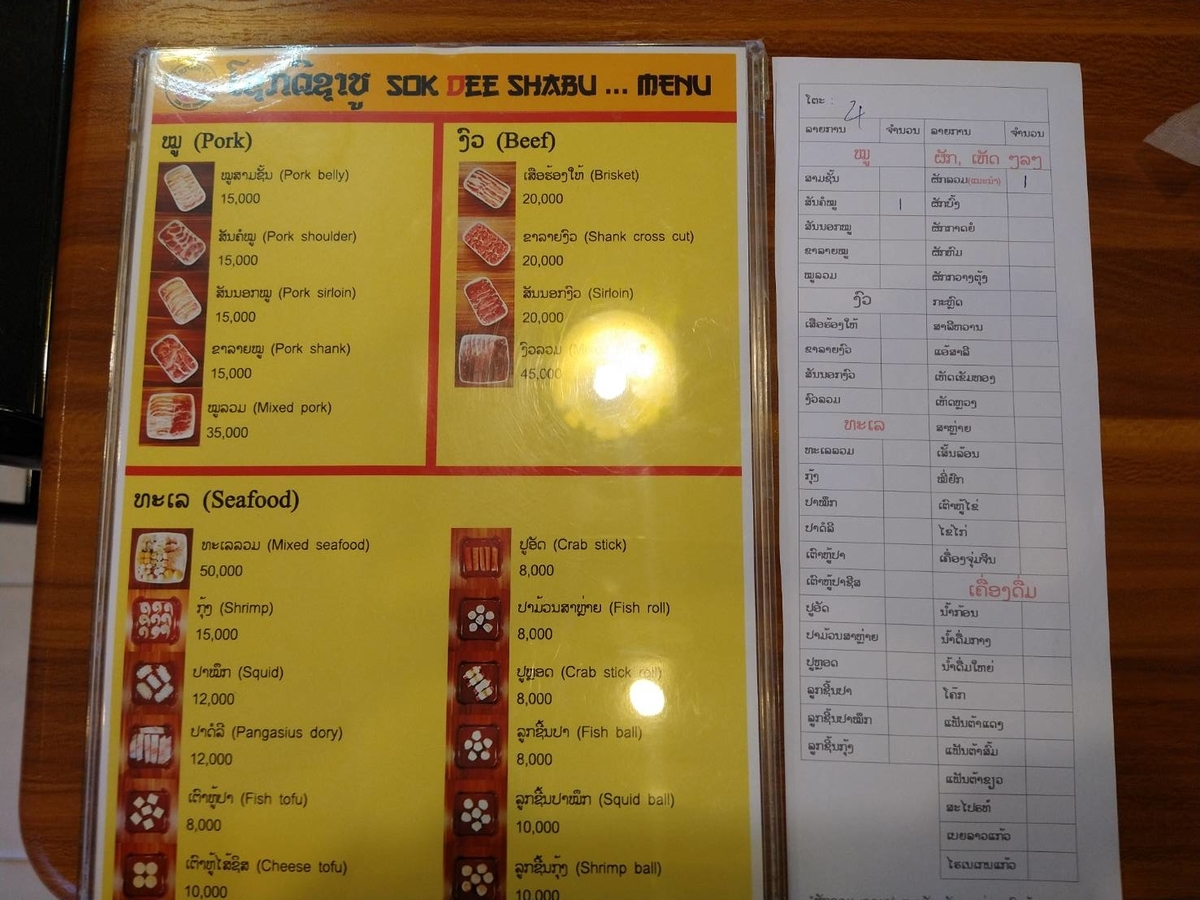 ໂຊກດີຊາບູ SOK DEE SHABU ... MENU
ໝູ (Pork)
ໝູສາມຊັ້ນ (Pork belly)
15,000
ສັນຄໍໝູ (Pork shoulder)
15,000
ສັນນອກໝູ (Pork sirloin)
15,000
ຂາລາຍໝູ (Pork shank)
15,000
ໝູລວມ (Mixed pork)
35,000
ງົວ (Beef)
ເສືອຮ້ອງໃຫ້ (Brisket)
20,000
ຂາລາຍງົວ (Shank cross cut)
20,000
ສັນນອກງົວ (Sirloin)
20,000
ງົວລວມ
45,000
ທະເລ (Seafood)
ທະເລລວມ (Mixed seafood)
50,000
ກຸ້ງ (Shrimp)
15,000
ປາໝຶກ (Squid)
12,000
ປາດໍລີ (Pangasius dory)
12,000
ເຕົາຫູ້ປາ (Fish tofu)
8,000
ເຕົາຫູ້ໄສ້ຊີສ (Cheese tofu)
10,000
ປູອັດ (Crab stick)
8,000
ປາມ້ວນສາຫຼ່າຍ (Fish roll)
8,000
ປູຫຼອດ (Crab stick roll)
8,000
ລູກຊີ້ນປາ (Fish ball)
8,000
ລູກຊີ້ນປາໝຶກ (Squid ball)
10,000
ລູກຊີ້ນກຸ້ງ (Shrimp ball)
10,000
ໂຕະ : 4
ລາຍການ ຈຳນວນ ລາຍການ ຈຳນວນ
ໝູ ຜັກ, ເຫັດ ໆລໆ
ສາມຊັ້ນ ຜັກລວມ(ແນະນຳ) 1
ສັນຄໍໝູ 1 ຜັກບົ້ງ
ສັນນອກໝູ ຜັກກາດຍໍ
ຂາລາຍໝູ ຜັກຫົມ
ໝູລວມ ຜັກກວາງຕຸ້ງ
ງົວ ກະຫຼົດ
ເສືອຮ້ອງໃຫ້ ສາລີຫວານ
ຂາລາຍງົວ ແອ້ສາລີ
ສັນນອກງົວ ເຫັດເຂັມທອງ
ງົວລວມ ເຫັດຫຼວງ
ທະເລ ສາຫຼ່າຍ
ທະເລລວມ ເສັ້ນລ້ອນ
ກຸ້ງ ໝີ່ຢົກ
ປາໝຶກ ເຕົາຫູ້ໄຂ່
ປາດໍລີ ໄຂ່ໄກ່
ເຕົາຫູ້ປາ ເຄື່ອງຈຸ່ມຈີນ
ເຕົາຫູ້ປາຊີສ ເຄື່ອງດື່ມ
ປູອັດ ນ້ຳກ້ອນ
ປາມ້ວນສາຫຼ່າຍ ນ້ຳດື່ມກາງ
ປູຫຼອດ ນ້ຳດື່ມໃຫຍ່
ລູກຊີ້ນປາ ໂຄ້ກ
ລູກຊີ້ນປາໝຶກ ແຟັນຕ້າແດງ
ລູກຊີ້ນກຸ້ງ ແຟັນຕ້າສົ້ມ
ແຟັນຕ້າຂຽວ
ສະໄປຣທ໌
ເບຍລາວແກ້ວ
ໄຮເນເກນແກ້ວ